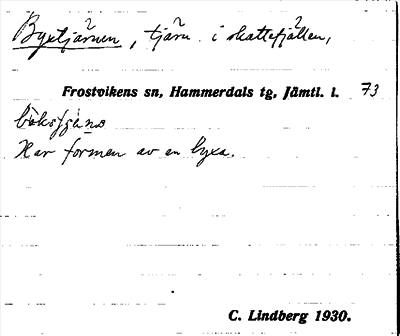 Byxtjärnen, tjärn i skattefjällen,
Frostvikens sn, Hammerdals tg, Jämtl. l. 73
Har formen av en byxa.
C. Lindberg 1930.